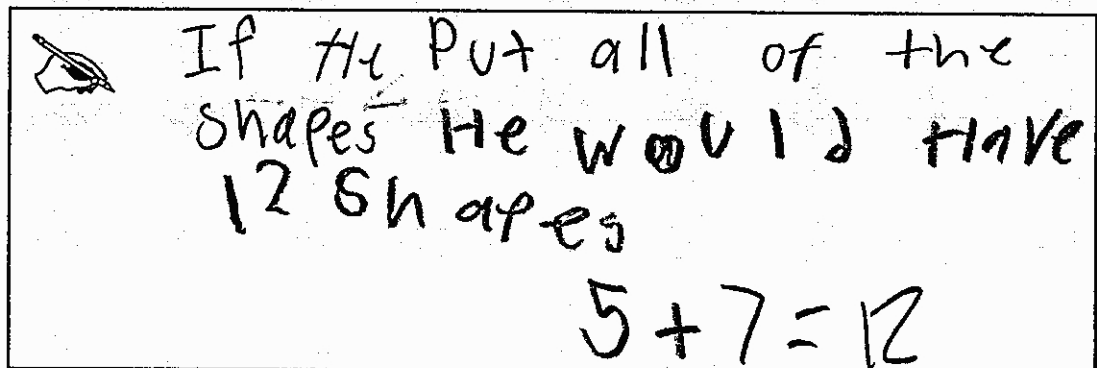 If He Put all of the
shapes He would Have
12 Shapes
5+7=12